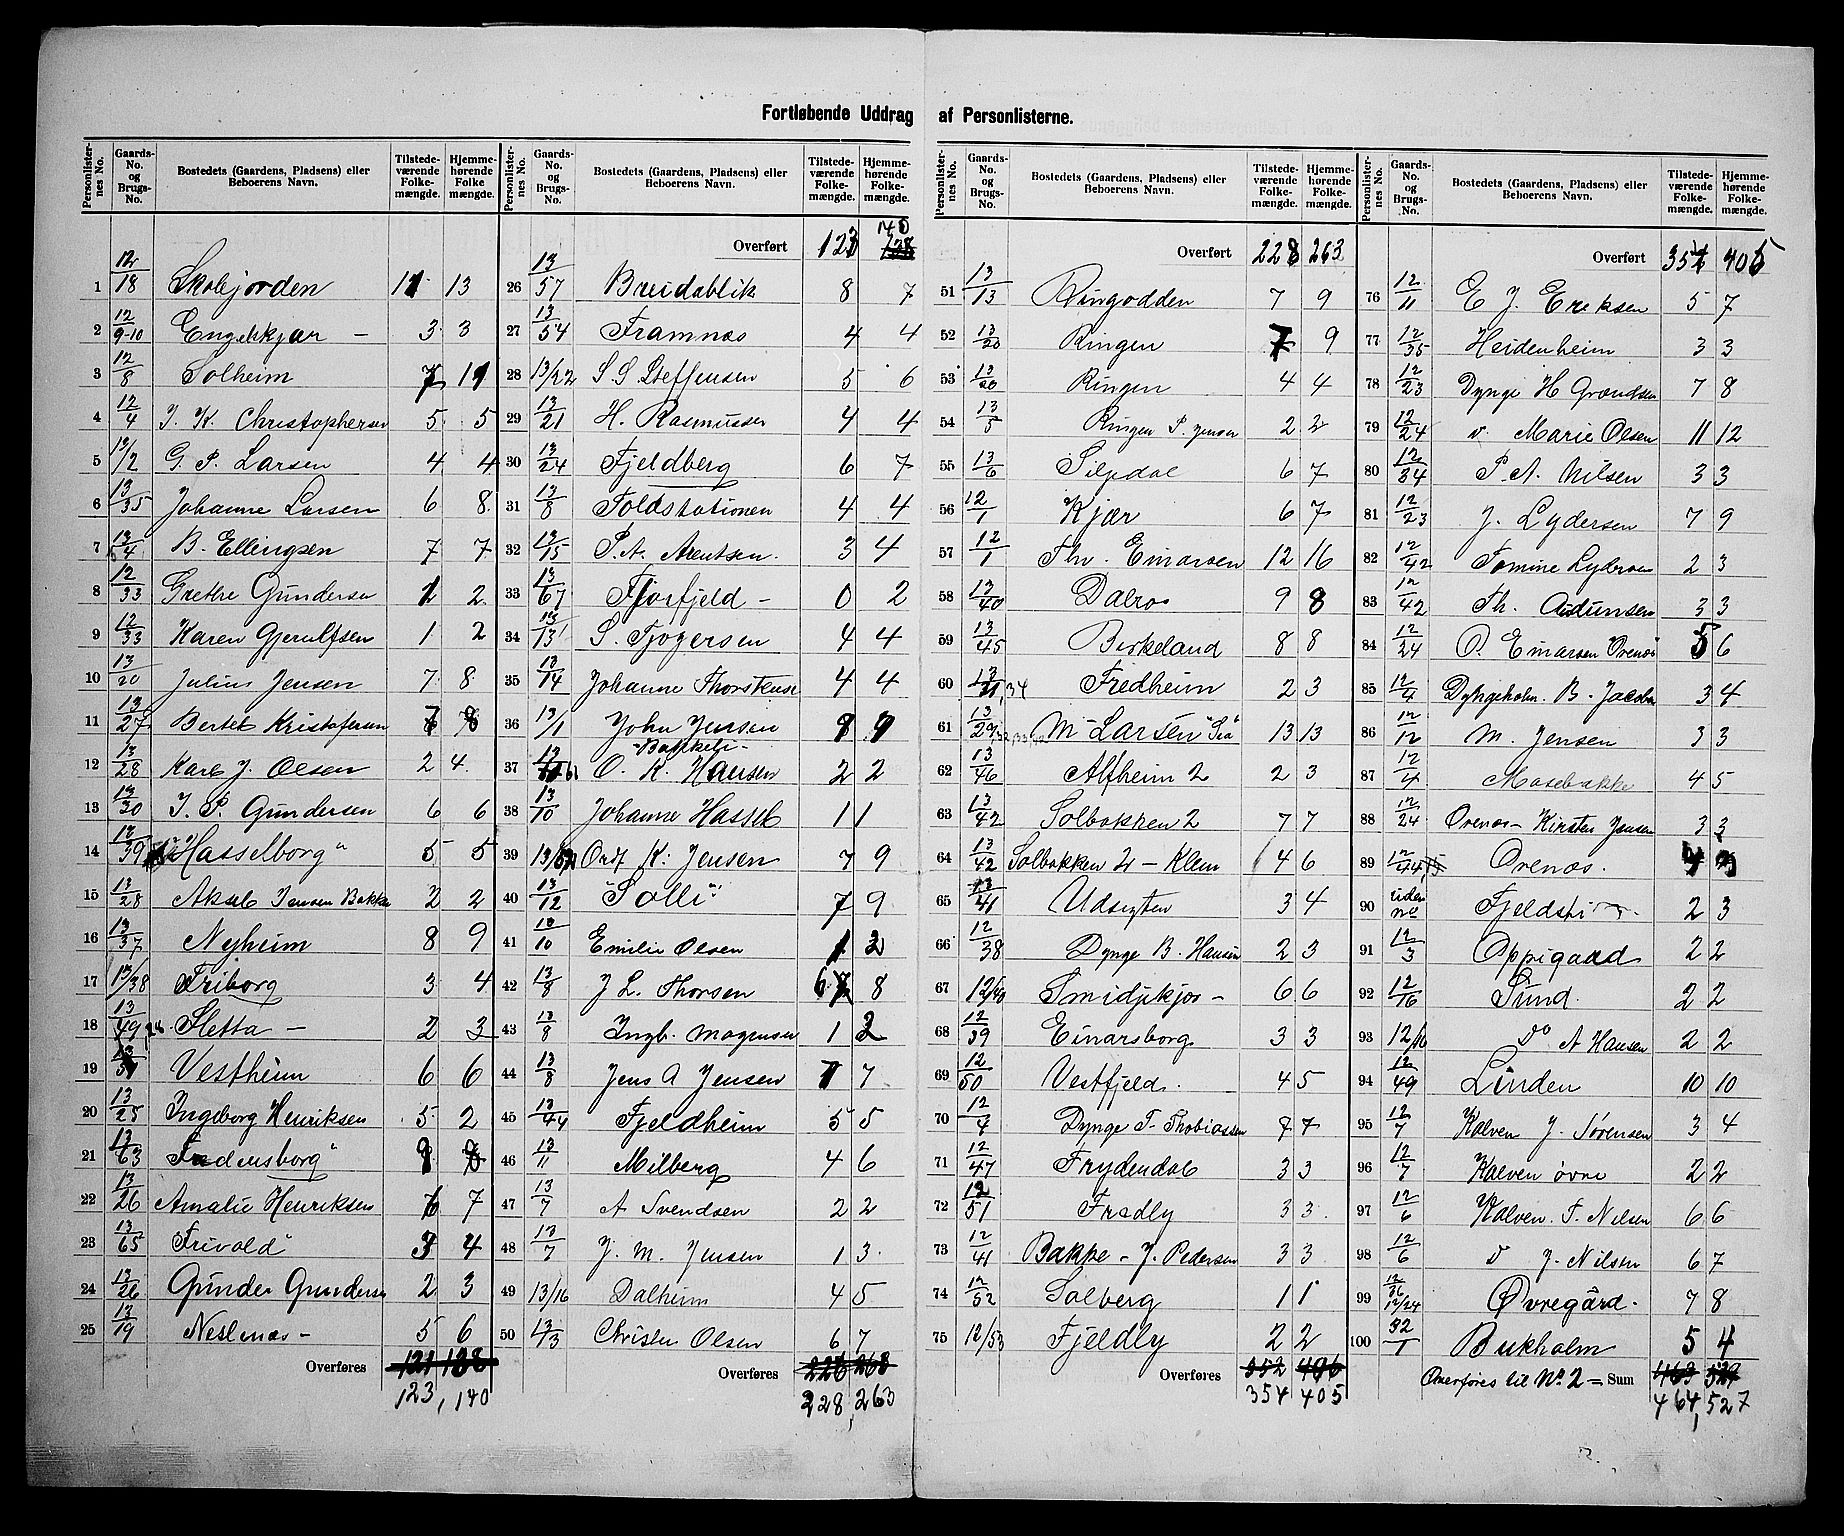 Fortløbende Uddrag af Personlisterne.
Personlisternes No. Gaards-No. og Brugs-No. Bostedets (Gaardens, Pladsens) eller Beboerens Navn. Tilstedeværende Folkemængde. Hjemmehørende Folkemængde.
1 12/18 Skobjorden 11 13
2 12/9-10 Engelskjær – 3 3
3 12/8 Solheim 7 11
4 12/4 J. K. Christophersen 5 5
5 13/2 G. P. Larsen 4 4
6 13/35 Johanne Larsen 6 8
7 13/4 B. Ellingsen 7 7
8 12/33 Grethe Gundersen 1 2
9 12/33 Karen Gjerulfsen 1 2
10 13/20 Julius Jensen 7 8
11 13/27 Bertel Kristofersen
12 13/28 Karl J. Olsen 2 4
13 13/30 J. P. Gundersen 6 6
14 13/39 "Hasselborg" 5 5
15 13/28 Aksel Jensen Bakke 2 2
16 13/37 Nyheim 8 9
17 13/38 Friborg 3 4
18 13/49 Sletta – 2 3
19 Vestheim 6 6
20 13/25 Ingeborg Henriksen 5 2
21 13/63 Fredensborg"
22 13/26 Amalie Henriksen 7
23 13/65 Frivold" 3 4
24 13/26 Gunder Gundersen 2 3
25 13/19 Neslenæs – 5 6
Overføres 121 138
123, 140
Overført 123 140
26 13/57 Breidablik 8 7
27 13/54 Framnæs 4 4
28 13/22 S. G. Steffensen 5 6
29 13/21 H. Rasmussen 4 4
30 13/24 Fjeldberg 6 7
31 13/8 Toldstationen 4 4
32 13/15 P. A. Arentsen. 3 4
33 13/67 Fjorfjeld – 0 2
34 13/31 S. Tjøgersen 4 4
35 13/14 Johanne Thorstense 4 4
36 13/1 John Jensen
37 "Bakkeli" O. K. Hansen 2 2
38 13/10 Johanne Hassel 1 1
39 Ordf K: Jensen 7 9
40 13/12 "Solli" 7 9
41 13/10 Emilie Olsen 1 2
42 13/8 J L. Thorsen 6 8
43 13/8 Ingb. Magnusen 1 2
44 13/8 Jens A Jensen 7 7
45 13/44 Fjeldheim 5 5
46 13/11 Milberg 4 6
47 13/7 A Svendsen 2 2
48 13/7 J. M. Jensen 1 3
49 13/16 Dalheim 4 5
50 13/3 Christen Olsen 6 7
Overføres 226 268
228, 263
Overført 228 263
51 13/13 Ringodden 7 9
52 13/20 Ringen 7 9
53 13/20 Ringen 4 4
54 13/5 Ringen P. Jensen 2 2
55 13/6 Silpedal 6 7
56 12/1 Kjær 6 7
57 12/1 Thv. Einarsen 12 16
58 13/40 Dalros 9 8
59 13/45 Birkeland 8 8
60 13/31, 34 Fredheim 2 3
61 13/29 M. Larsen "Sia" 13 13
62 13/46 Alfheim 2 2 3
63 13/42 Solbakken 2 7 7
64 13/42 Solbakken 2 – Klem 4 6
65 13/41 Udsigten 3 4
66 12/38 Dynge B. Hansen 2 3
67 12/40 Smidjekjær – 6 6
68 12/39 Einarsborg 3 3
69 12/50 Vestfjeld. 4 5
70 12/4 Dynge T. Thobiassen 7 7
71 12/47 Frydendal 3 3
72 12/51 Fredly 3 3
73 12/41 Bakke – J. Pedersen 3 3
74 12/52 Solberg 1 1
75 12/53 Fjeldly 2 2
Overføres 352 406
354 405
Overført 354 405
76 12/11 E J. Eriksen 5 7
77 12/35 Heidenheim 3 3
78 12/23 Dynge H Grandsen 7 8
79 12/24 v. Marie Olsen 11 12
80 12/34 P. A. Nilsen 3 3
81 12/23 J. Lydersen 7 9
82 12/42 Tomine Lydersen 2 3
83 12/42 Th. Audunsen 3 3
84 12/24 O. Einarsen Ørenæs 5 6
85 12/4 Dyngeholm. B. Jacobsen 3 4
86 12/12 M. Jensen 3 3
87 12/4 Mosebakke 4 5
88 12/24 Ørenæs – Kirsten Jensen 3 3
89 12/44 Ørenæs.
90 uden no Fjeldsti 2 3
91 12/3 Oppigaard 2 2
92 12/16 Sund. 2 2
93 12/16 Do A Hansen 2 2
94 12/49 Linden 10 10
95 12/7 Kalven J. Sørensen 3 4
96 12/7 Kalven øvre 2 2
97 12/6 Kalven. F. Nilsen 6 6
98 12/6 v J. Nilsen 6 7
99 12/24 Øvregård. 7 8
100 32/1 Birkholm 5 4
Overføres til No. 2 = Sum 463 529
464, 527